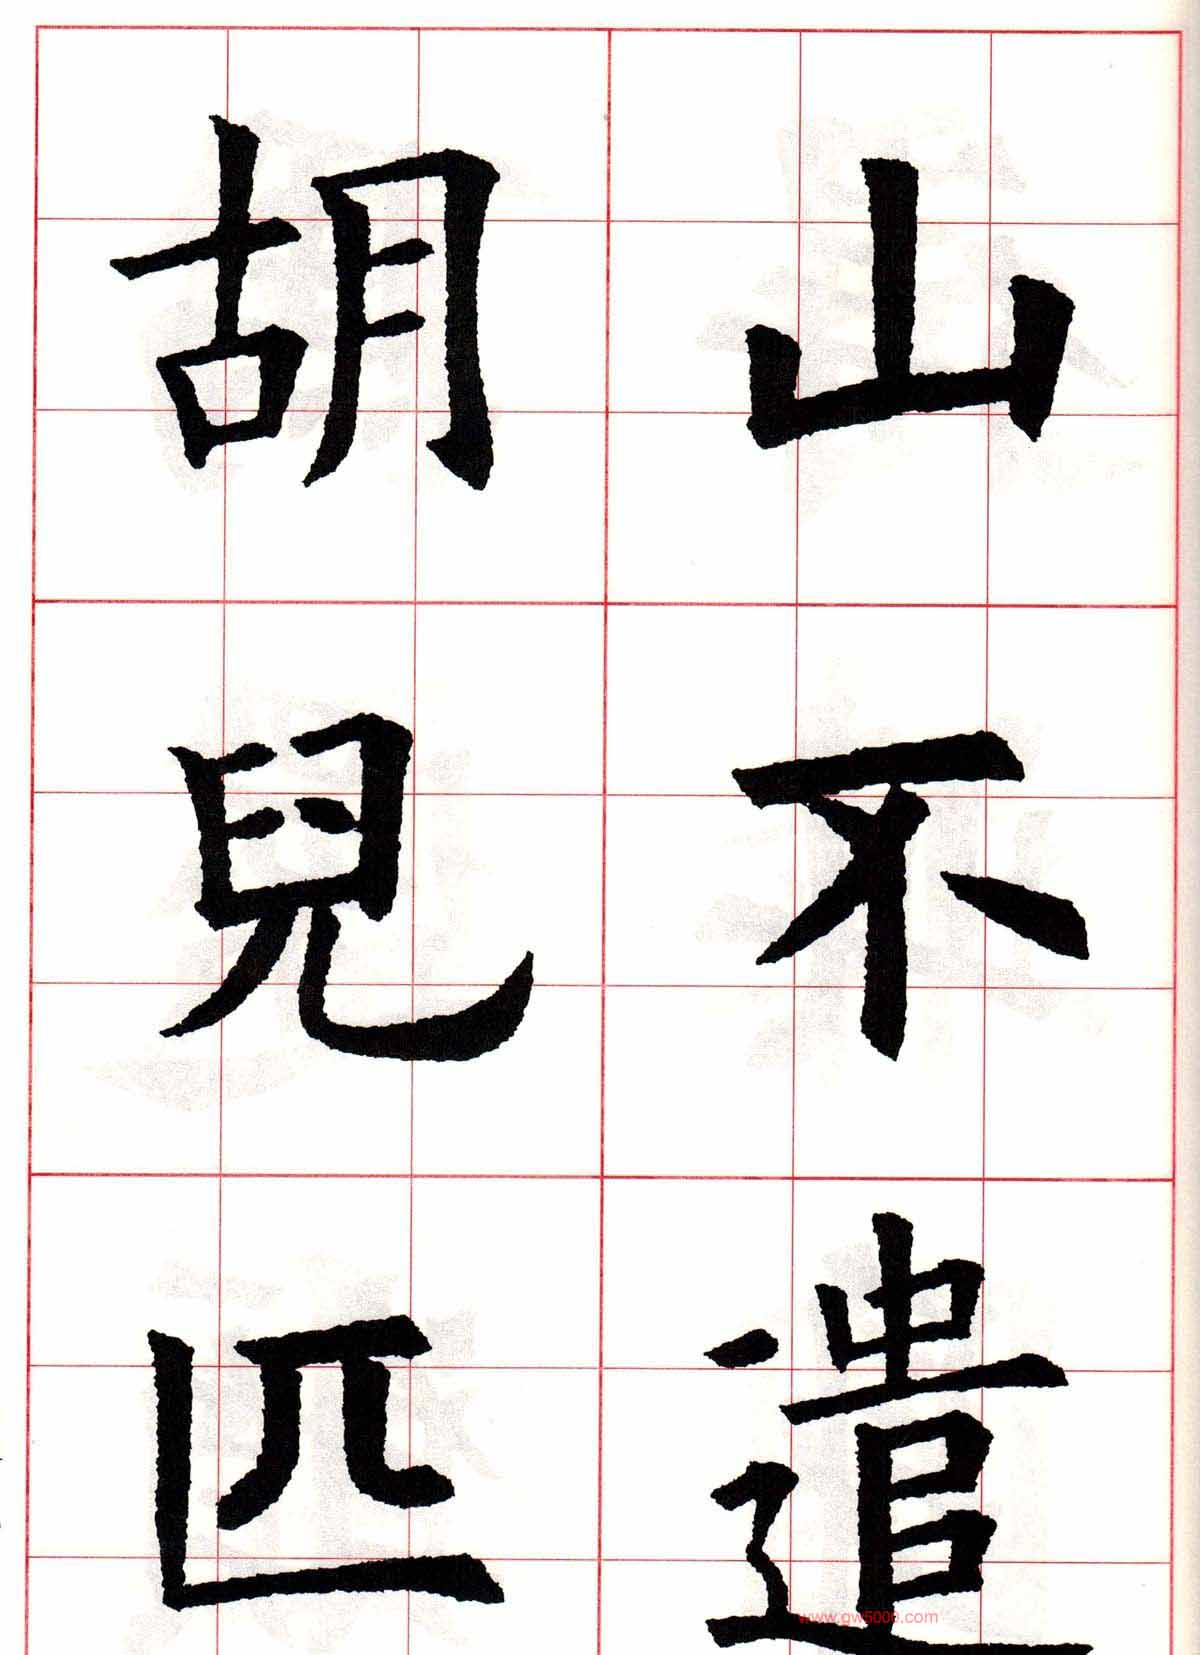 山不遣
胡兒匹
www.gw5000.com